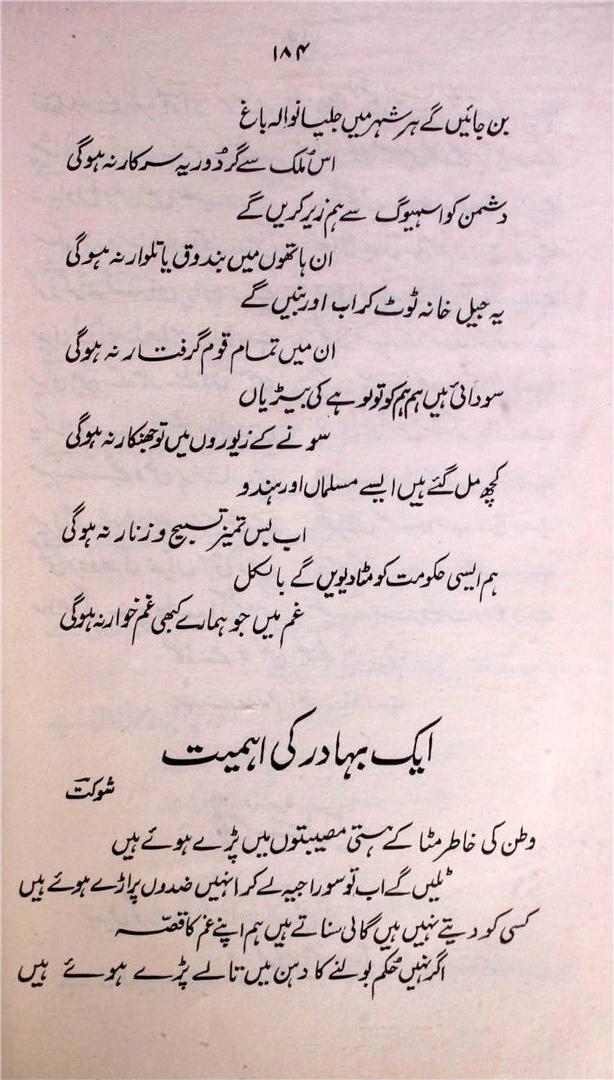 ۱۸۴
بن جائیں گے ہر شہر میں جلیانوالہ باغ
اس ملک سے گر دُور یہ سرکار نہ ہوگی
دشمن کو اسہیوگ سے ہم زیر کریں گے
ان ہاتھوں میں بندوق یا تلوار نہ ہوگی
یہ جیل خانہ ٹوٹ کر اب اور بنیں گے
ان میں تمام قوم گرفتار نہ ہوگی
سودائی ہیں ہم ہم کو تو لوہے کی بیڑیاں
سونے کے زیوروں میں تو جھنکار نہ ہوگی
کچھ مل گئے ہیں ایسے مسلماں اور ہندو
اب بس تمیز تسبیح و زنار نہ ہوگی
ہم ایسی حکومت کو مٹا دیویں گے بالکل
غم میں جو ہمارے کبھی غم خوار نہ ہوگی
ایک بہادر کی اہمیت
شوکت
وطن کی خاطر مٹا کے ہستی مصیبتوں میں پڑے ہوئے ہیں
ٹلیں گے اب تو سوراجیہ لے کر انہیں ضدوں پر اڑے ہوئے ہیں
کسی کو دیتے نہیں ہیں گالی سناتے ہیں ہم اپنے غم کا قصّہ
اگر نہیں حُکم بولنے کا دہن میں تالے پڑے ہوئے ہیں